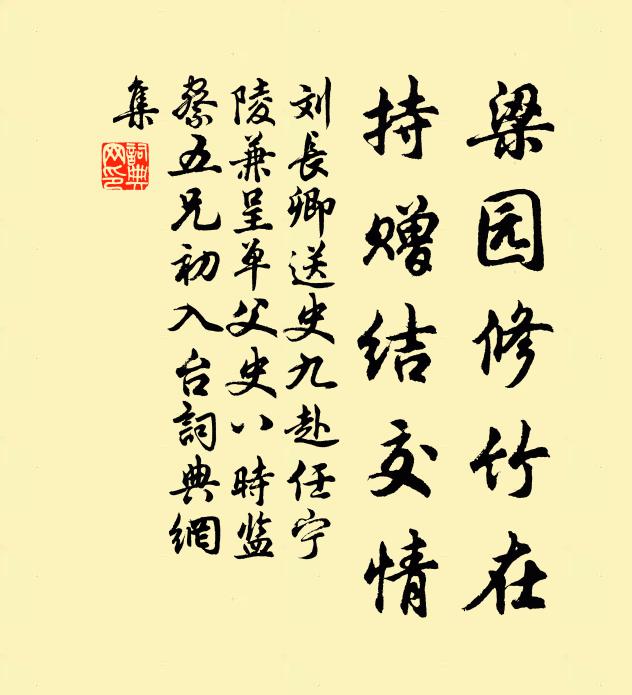 梁园修竹在
持赠结交情
刘长卿送史九赴任宁
陵兼呈单父史八時监
察五兄初入台詞典網
集
詞典
网印